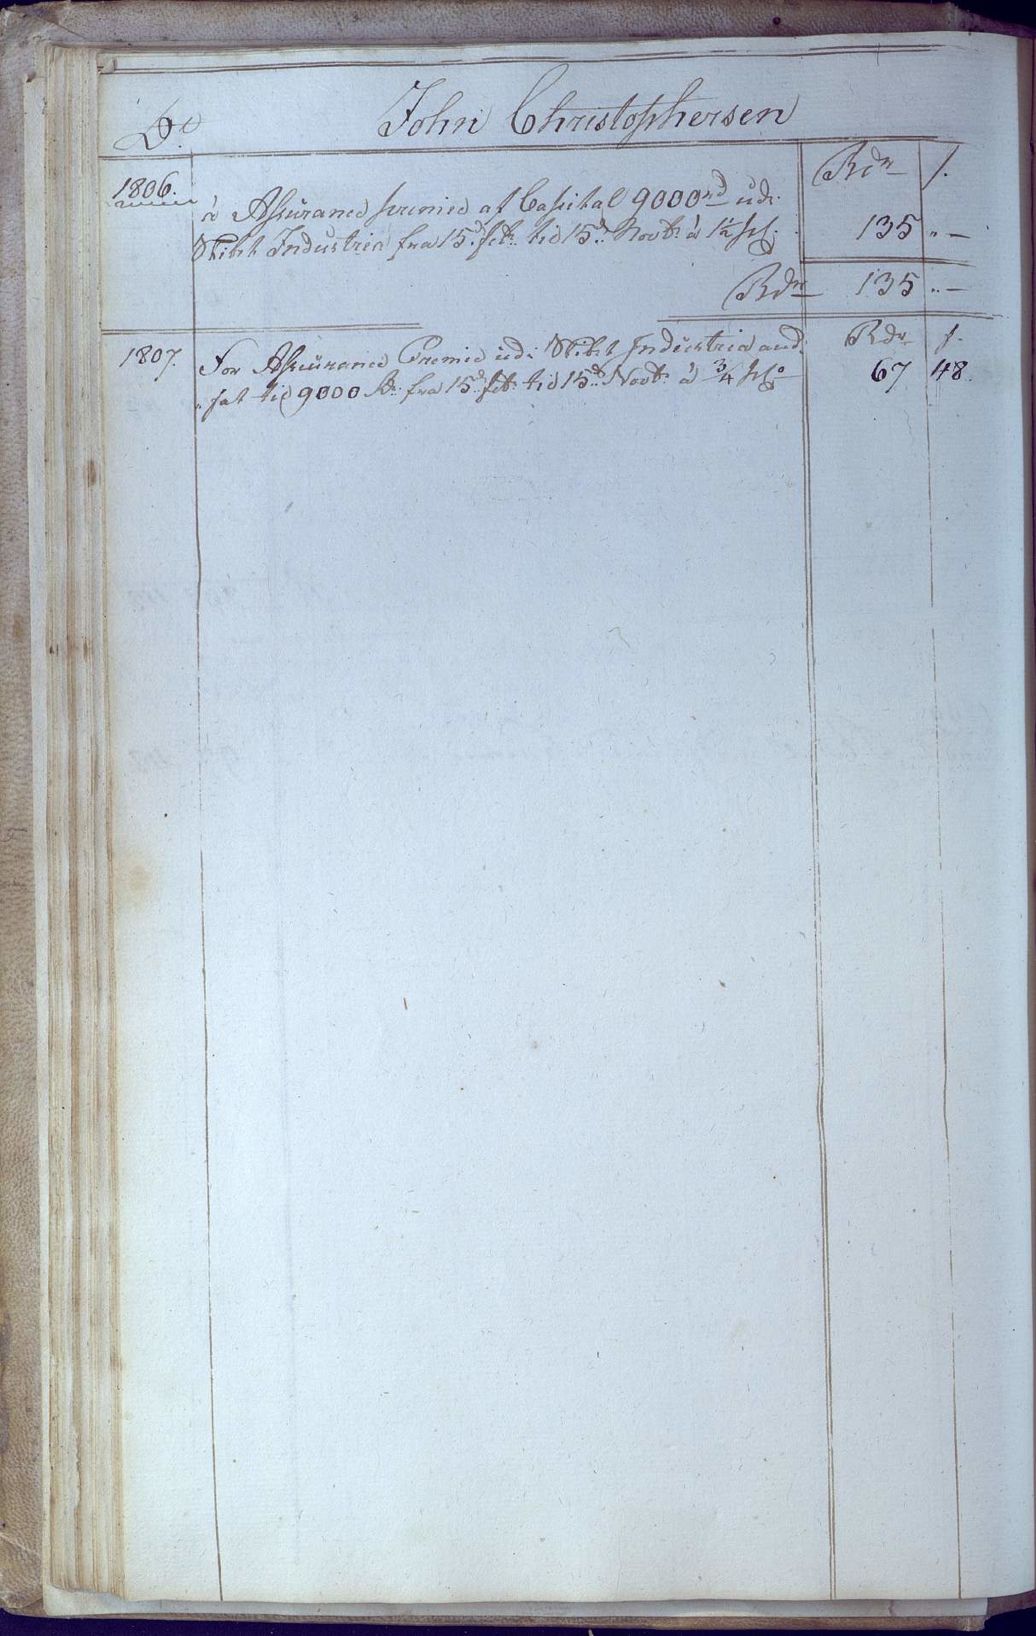 Do John Christophersen
Rdr ƒ.
1806. à Assurance premie af Capital 9000rd udi
Skibet Industria fra 15d feb: tid 15d Novb: à 1½ 135 „ —
Rdr 135 „ —
1807. For Assurance Premie udi Skibet Industria and Rdr ƒ.
sat til 9000 fra 15d feb: tid 15d Novb: à ¾ 67 48